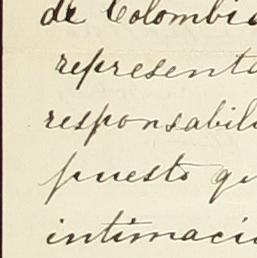 de Colombia
representa
responsabili
puesto qu
intimaci